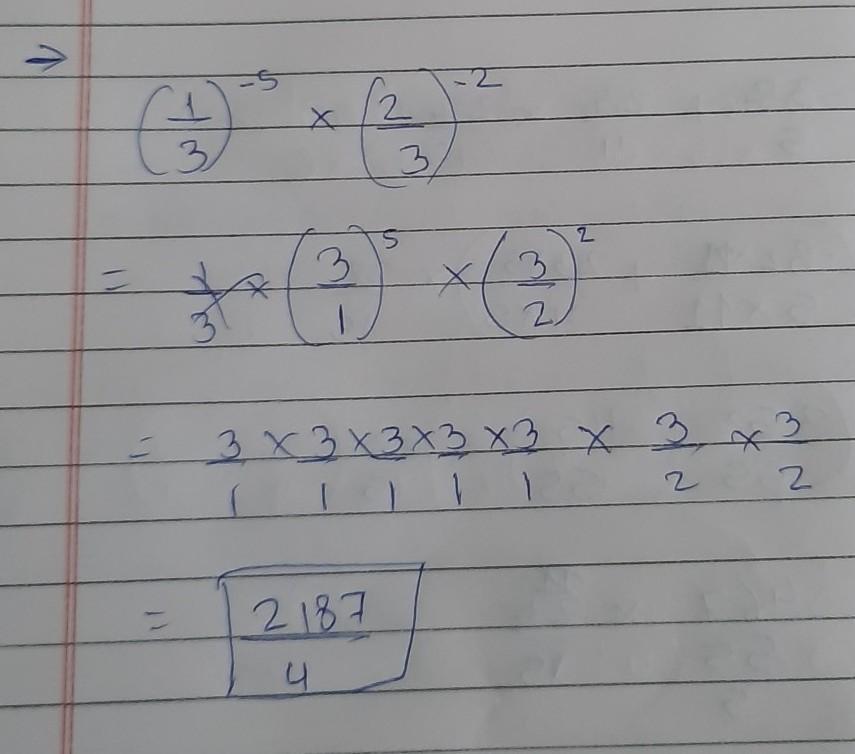 →
(1/3)^-5 × (2/3)^-2
= 1/3 × (3/1)^5 × (3/2)^2
= 3/1 × 3/1 × 3/1 × 3/1 × 3/1 × 3/2 × 3/2
= 2187/4